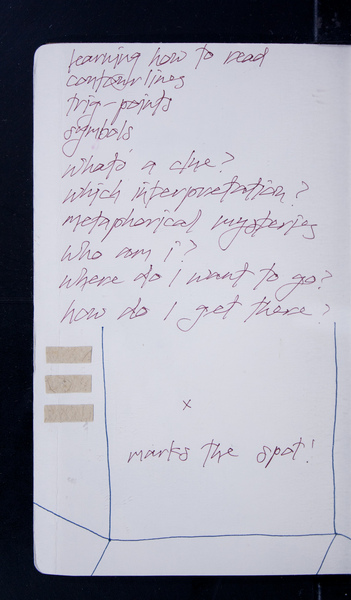 learning how to read
contour lines
trig-points
symbols
what's a clue?
which interpretation?
metaphorical mysteries
who am i?
where do I want to go?
how do I get there?
x
marks the spot!